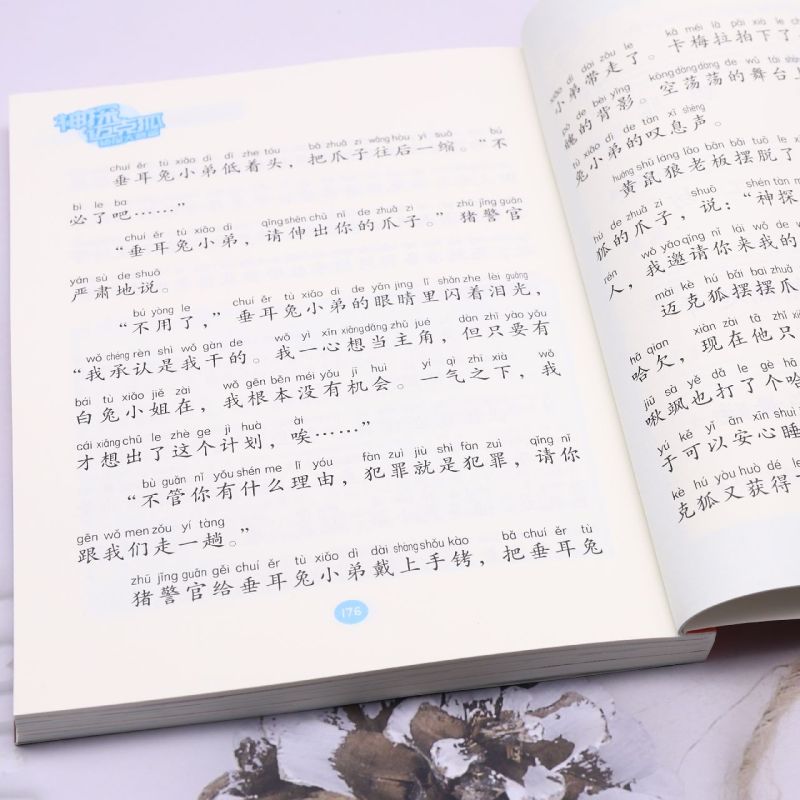 神探
迈克狐
chuí ěr tù xiǎo dì dī zhe tóu bǎ zhuǎ zi wǎng hòu yì suō bú
垂耳兔小弟低着头，把爪子往后一缩。“不
bì le ba
必了吧……”
chuí ěr tù xiǎo dì qǐng shēn chū nǐ de zhuǎ zi zhū jǐng guān
“垂耳兔小弟，请伸出你的爪子。”猪警官
yán sù de shuō
严肃地说。
bú yòng le chuí ěr tù xiǎo dì de yǎn jing lǐ shǎn zhe lèi guāng
“不用了，”垂耳兔小弟的眼睛里闪着泪光，
wǒ chéng rèn shì wǒ gàn de wǒ yì xīn xiǎng dāng zhǔ jué dàn zhǐ yào yǒu
“我承认是我干的。我一心想当主角，但只要有
bái tù xiǎo jiě zài wǒ gēn běn méi yǒu jī huì yí qì zhī xià wǒ
白兔小姐在，我根本没有机会。一气之下，我
cái xiǎng chū le zhè ge jì huà ài
才想出了这个计划，唉……”
bù guǎn nǐ yǒu shén me lǐ yóu fàn zuì jiù shì fàn zuì qǐng nǐ
“不管你有什么理由，犯罪就是犯罪，请你
gēn wǒ men zǒu yí tàng
跟我们走一趟。”
zhū jǐng guān gěi chuí ěr tù xiǎo dì dài shàng shǒu kào bǎ chuí ěr tù
猪警官给垂耳兔小弟戴上手铐，把垂耳兔
176
xiǎo dì dài zǒu le kǎ méi lā pāi xià le
小弟带走了。卡梅拉拍下了
pò de bèi yǐng kōng dàng dàng de wǔ tái shàng
魄的背影。空荡荡的舞台上
tù xiǎo dì de tàn xī shēng
兔小弟的叹息声。
huáng shǔ láng lǎo bǎn bǎi tuō le
黄鼠狼老板摆脱了
hú de zhuǎ zi shuō shén tàn
狐的爪子，说：“神探
rén wǒ yāo qǐng nǐ lái wǒ de
人，我邀请你来我的
mài kè hú bǎi bai zhuǎ
迈克狐摆摆爪
hā qian xiàn zài tā zhǐ
哈欠，现在他只
jiū sà yě dǎ le gè hā
啾飒也打了个哈
yú kě yǐ ān xīn shuì
于可以安心睡
kè hú yòu huò dé
克狐又获得